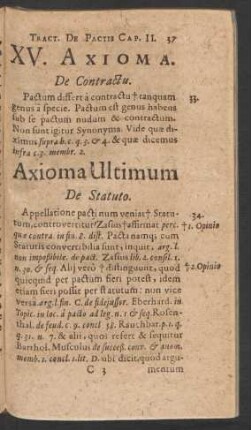 TRACT. DE PACTIS CAP. II. 37
XV. AXIOMA.
De Contractu.
Pactum differt à contractu † tanquam 33.
genus à specie. Pactum est genus habens
sub se pactum nudum & contractum.
Non sunt igitur Synonyma. Vide quæ di-
ximus supra h. c. q. 3. & 4. & quæ dicemus
infra c. 3. membr. 2.
Axioma Ultimum
De Statuto.
Appellatione pacti num veniat † Statu- 34.
tum, controvertitur Zasius † affirmat per c. †1. Opinio
quæ contra in fin. 2. dist. Pacta namq; cum
Statutis convertibilia sunt, inquit, arg. l.
non impossibile. de pact. Zasius lib. 2. consil. 1.
n. 30. & seq. Alij verò † distinguunt, quod †2. Opinio
quicquid per pactum fieri potest, idem
etiam fieri possit per statutum: non vice
versa arg. l. fin. C. de fidejussor. Eberhard. in
Topic. in loc. à pacto ad leg. n. 1. & seq. Rosen-
thal. de feud. c. 9. concl. 38. Rauchbar. p. 1. q.
q. 31. n. 7. & alii, quos refert & sequitur
Barthol. Musculus de success. conv. & anom.
memb. 1. concl. 1. lit. D. ubi dicit, quod argu-
C 3 mentum